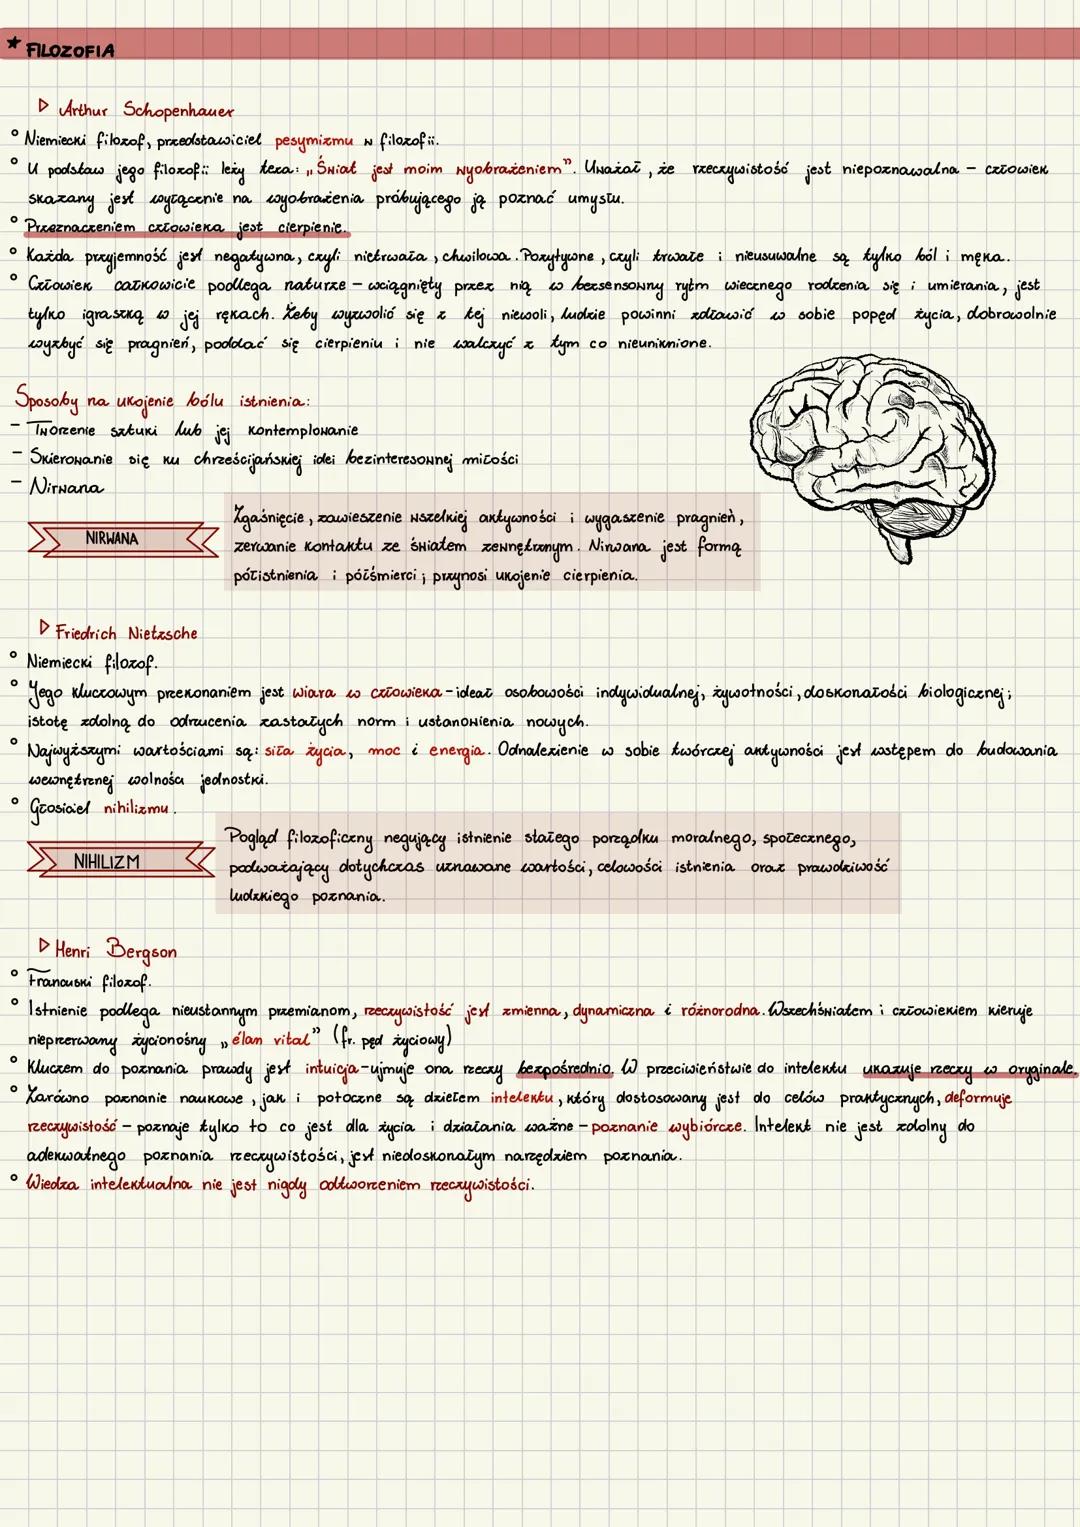 * FILOZOFIA
▷ Arthur Schopenhauer
° Niemiecki filozof, przedstawiciel pesymizmu w filozofii.
° U podstaw jego filozofii leży teza: „Świat jest moim wyobrażeniem”. Uważał, że rzeczywistość jest niepoznawalna – człowiek
skazany jest wyłącznie na wyobrażenia próbującego ją poznać umysłu.
° Przeznaczeniem człowieka jest cierpienie.
° Każda przyjemność jest negatywna, czyli nietrwała, chwilowa. Pozytywne, czyli trwałe i nieusuwalne są tylko ból i męka.
° Człowiek całkowicie podlega naturze – wciągnięty przez nią w bezsensowny rytm wiecznego rodzenia się i umierania, jest
tylko igraszką w jej rękach. Żeby wyzwolić się z tej niewoli, ludzie powinni zdławić w sobie popęd życia, dobrowolnie
wyzbyć się pragnień, poddać się cierpieniu i nie walczyć z tym co nieuniknione.
Sposoby na ukojenie bólu istnienia:
- Tworzenie sztuki lub jej kontemplowanie
- Skierowanie się ku chrześcijańskiej idei bezinteresownej miłości
- Nirwana
NIRWANA
Zgaśnięcie, zawieszenie wszelkiej aktywności i wygaszenie pragnień,
zerwanie kontaktu ze światem zewnętrznym. Nirwana jest formą
półistnienia i półśmierci; przynosi ukojenie cierpienia.
▷ Friedrich Nietzsche
° Niemiecki filozof.
° Jego kluczowym przekonaniem jest wiara w człowieka - ideał osobowości indywidualnej, żywotności, doskonałości biologicznej;
istotę zdolną do odrzucenia zastałych norm i ustanowienia nowych.
° Najwyższymi wartościami są: siła życia, moc i energia. Odnalezienie w sobie twórczej aktywności jest wstępem do budowania
wewnętrznej wolności jednostki.
° Głosiciel nihilizmu.
NIHILIZM
Pogląd filozoficzny negujący istnienie stałego porządku moralnego, społecznego,
podważający dotychczas uznawane wartości, celowości istnienia oraz prawdziwość
ludzkiego poznania.
▷ Henri Bergson
° Francuski filozof.
° Istnienie podlega nieustannym przemianom, rzeczywistość jest zmienna, dynamiczna i różnorodna. Wszechświatem i człowiekiem kieruje
nieprzerwany życionośny „élan vital” (fr. pęd życiowy)
° Kluczem do poznania prawdy jest intuicja - ujmuje ona rzeczy bezpośrednio. W przeciwieństwie do intelektu ukazuje rzeczy w oryginale.
° Zarówno poznanie naukowe, jak i potoczne są dziełem intelektu, który dostosowany jest do celów praktycznych, deformuje
rzeczywistość – poznaje tylko to co jest dla życia i działania ważne – poznanie wybiórcze. Intelekt nie jest zdolny do
adekwatnego poznania rzeczywistości, jest niedoskonałym narzędziem poznania.
° Wiedza intelektualna nie jest nigdy odtworzeniem rzeczywistości.